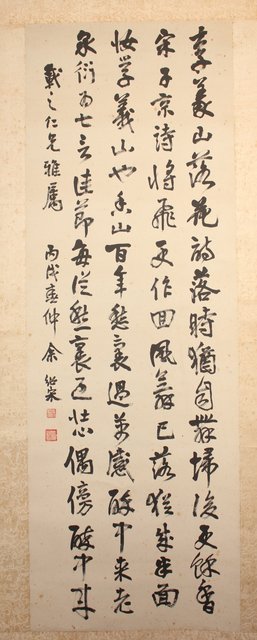 李義山落花詩落時猶自舞掃後更餘香
宋子京詩將飛更作回風舞已落猶成半面
妝學義山也香山百年愁裏過萬感醉中來老
泉衍為七言佳節每從愁裏過壯心偶傍醉中來
戴之仁兄雅屬 丙戌春仲 余紹宋